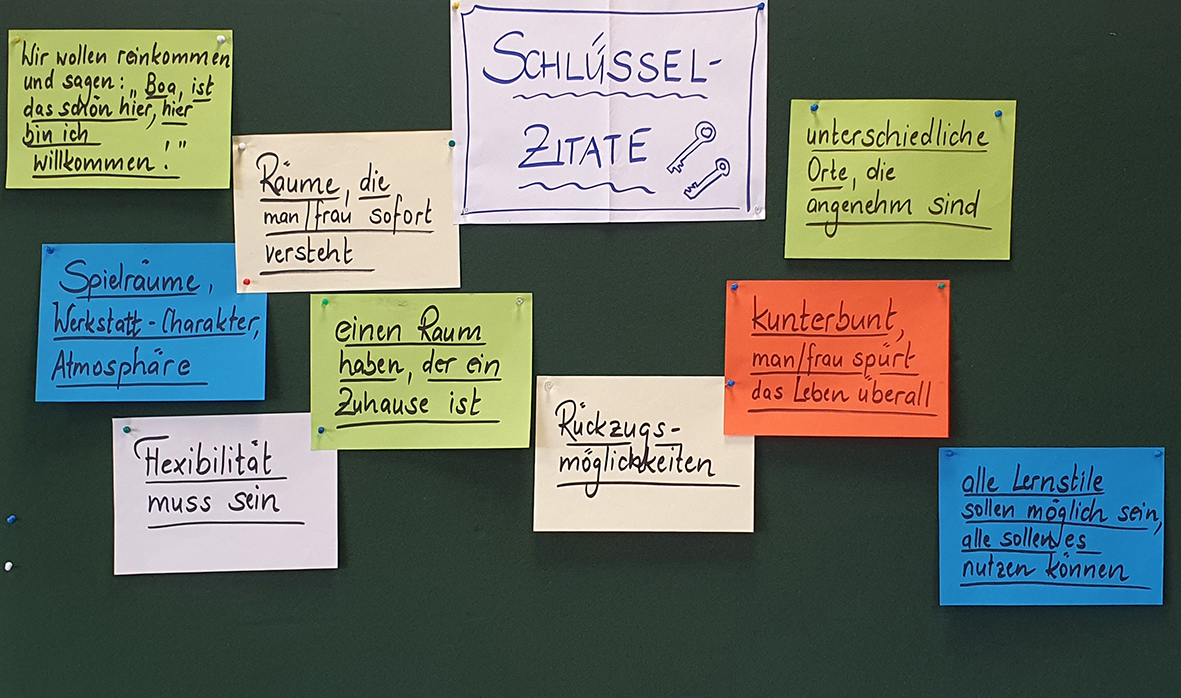 SCHLÜSSEL-
ZITATE
Wir wollen reinkommen
und sagen: „Boa, ist
das schön hier, hier
bin ich
willkommen!"
Räume, die
man/frau sofort
versteht
unterschiedliche
Orte, die
angenehm sind
Spielräume,
Werkstatt-Charakter,
Atmosphäre
einen Raum
haben, der ein
Zuhause ist
kunterbunt,
man/frau spürt
das Leben überall
Flexibilität
muss sein
Rückzugs-
möglichkeiten
alle Lernstile
sollen möglich sein,
alle sollen es
nutzen können